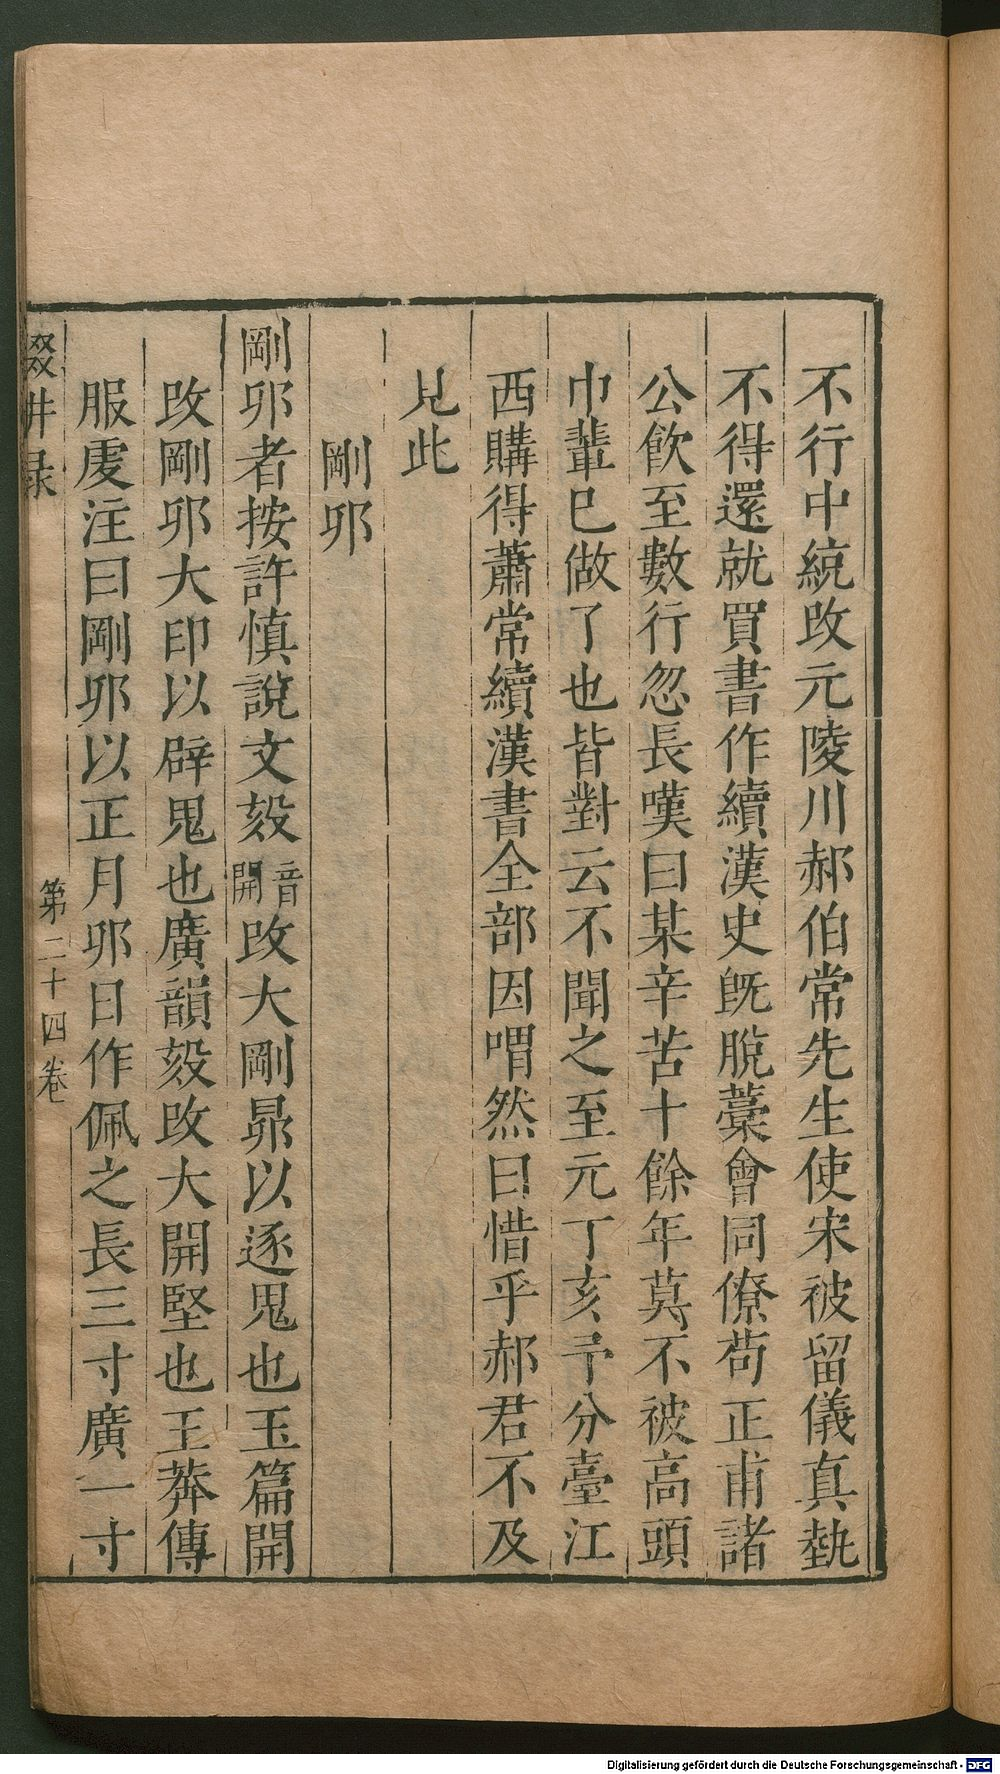 不行中統改元陵川郝伯常先生使宋被留儀真執
不得還就買書作續漢史旣脫藁會同僚苟正甫諸
公飲至數行忽長嘆曰某辛苦十餘年莫不被高頭
巾輩已做了也皆對云不聞之至元丁亥予分臺江
西購得蕭常續漢書全部因喟然曰惜乎郝君不及
見此
剛卯
剛卯者按許慎說文㱾音開改大剛昴以逐鬼也玉篇開
改剛卯大印以辟鬼也廣韻㱾改大開堅也王莽傳
服虔注曰剛卯以正月卯日作佩之長三寸廣一寸
輟畊录
第二十四卷
Digitalisierung gefördert durch die Deutsche Forschungsgemeinschaft - DFG